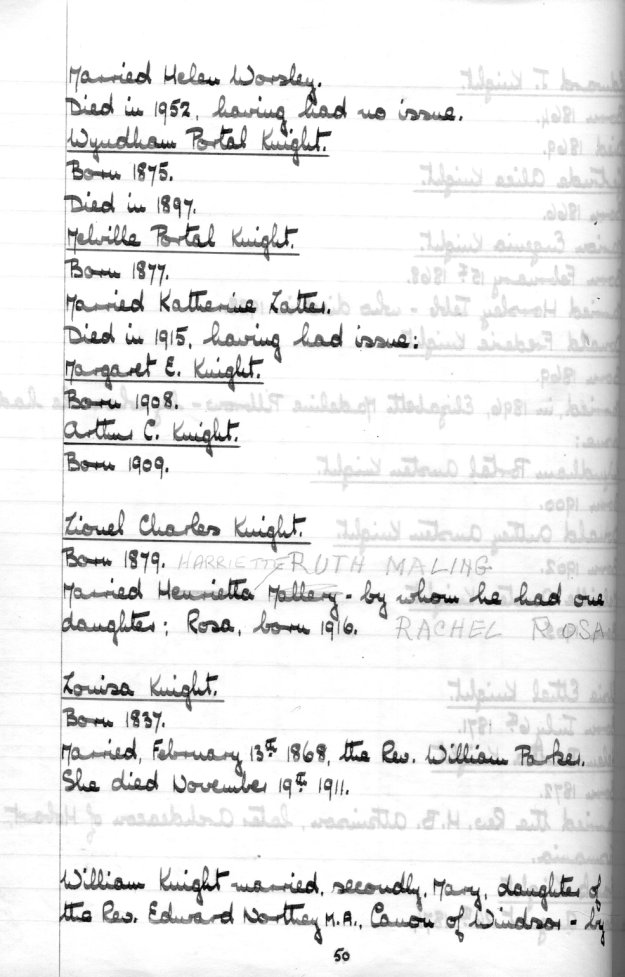 Married Helen Worsley.
Died in 1952, having had no issue.
Wyndham Portal Knight.
Born 1875.
Died in 1897.
Melville Portal Knight.
Born 1877.
Married Katherine Latter.
Died in 1915, having had issue:
Margaret E. Knight.
Born 1908.
Arthur C. Knight.
Born 1909.
Lionel Charles Knight.
Born 1879. HARRIETTE RUTH MALING
Married Henrietta Mallery - by whom he had one
daughter; Rosa, born 1916. RACHEL ROSA
Louisa Knight.
Born 1837.
Married, February 13th 1868, the Rev. William Parker.
She died November 19th 1911.
William Knight married, secondly, Mary, daughter of
the Rev. Edward Northey M.A., Canon of Windsor - by
50